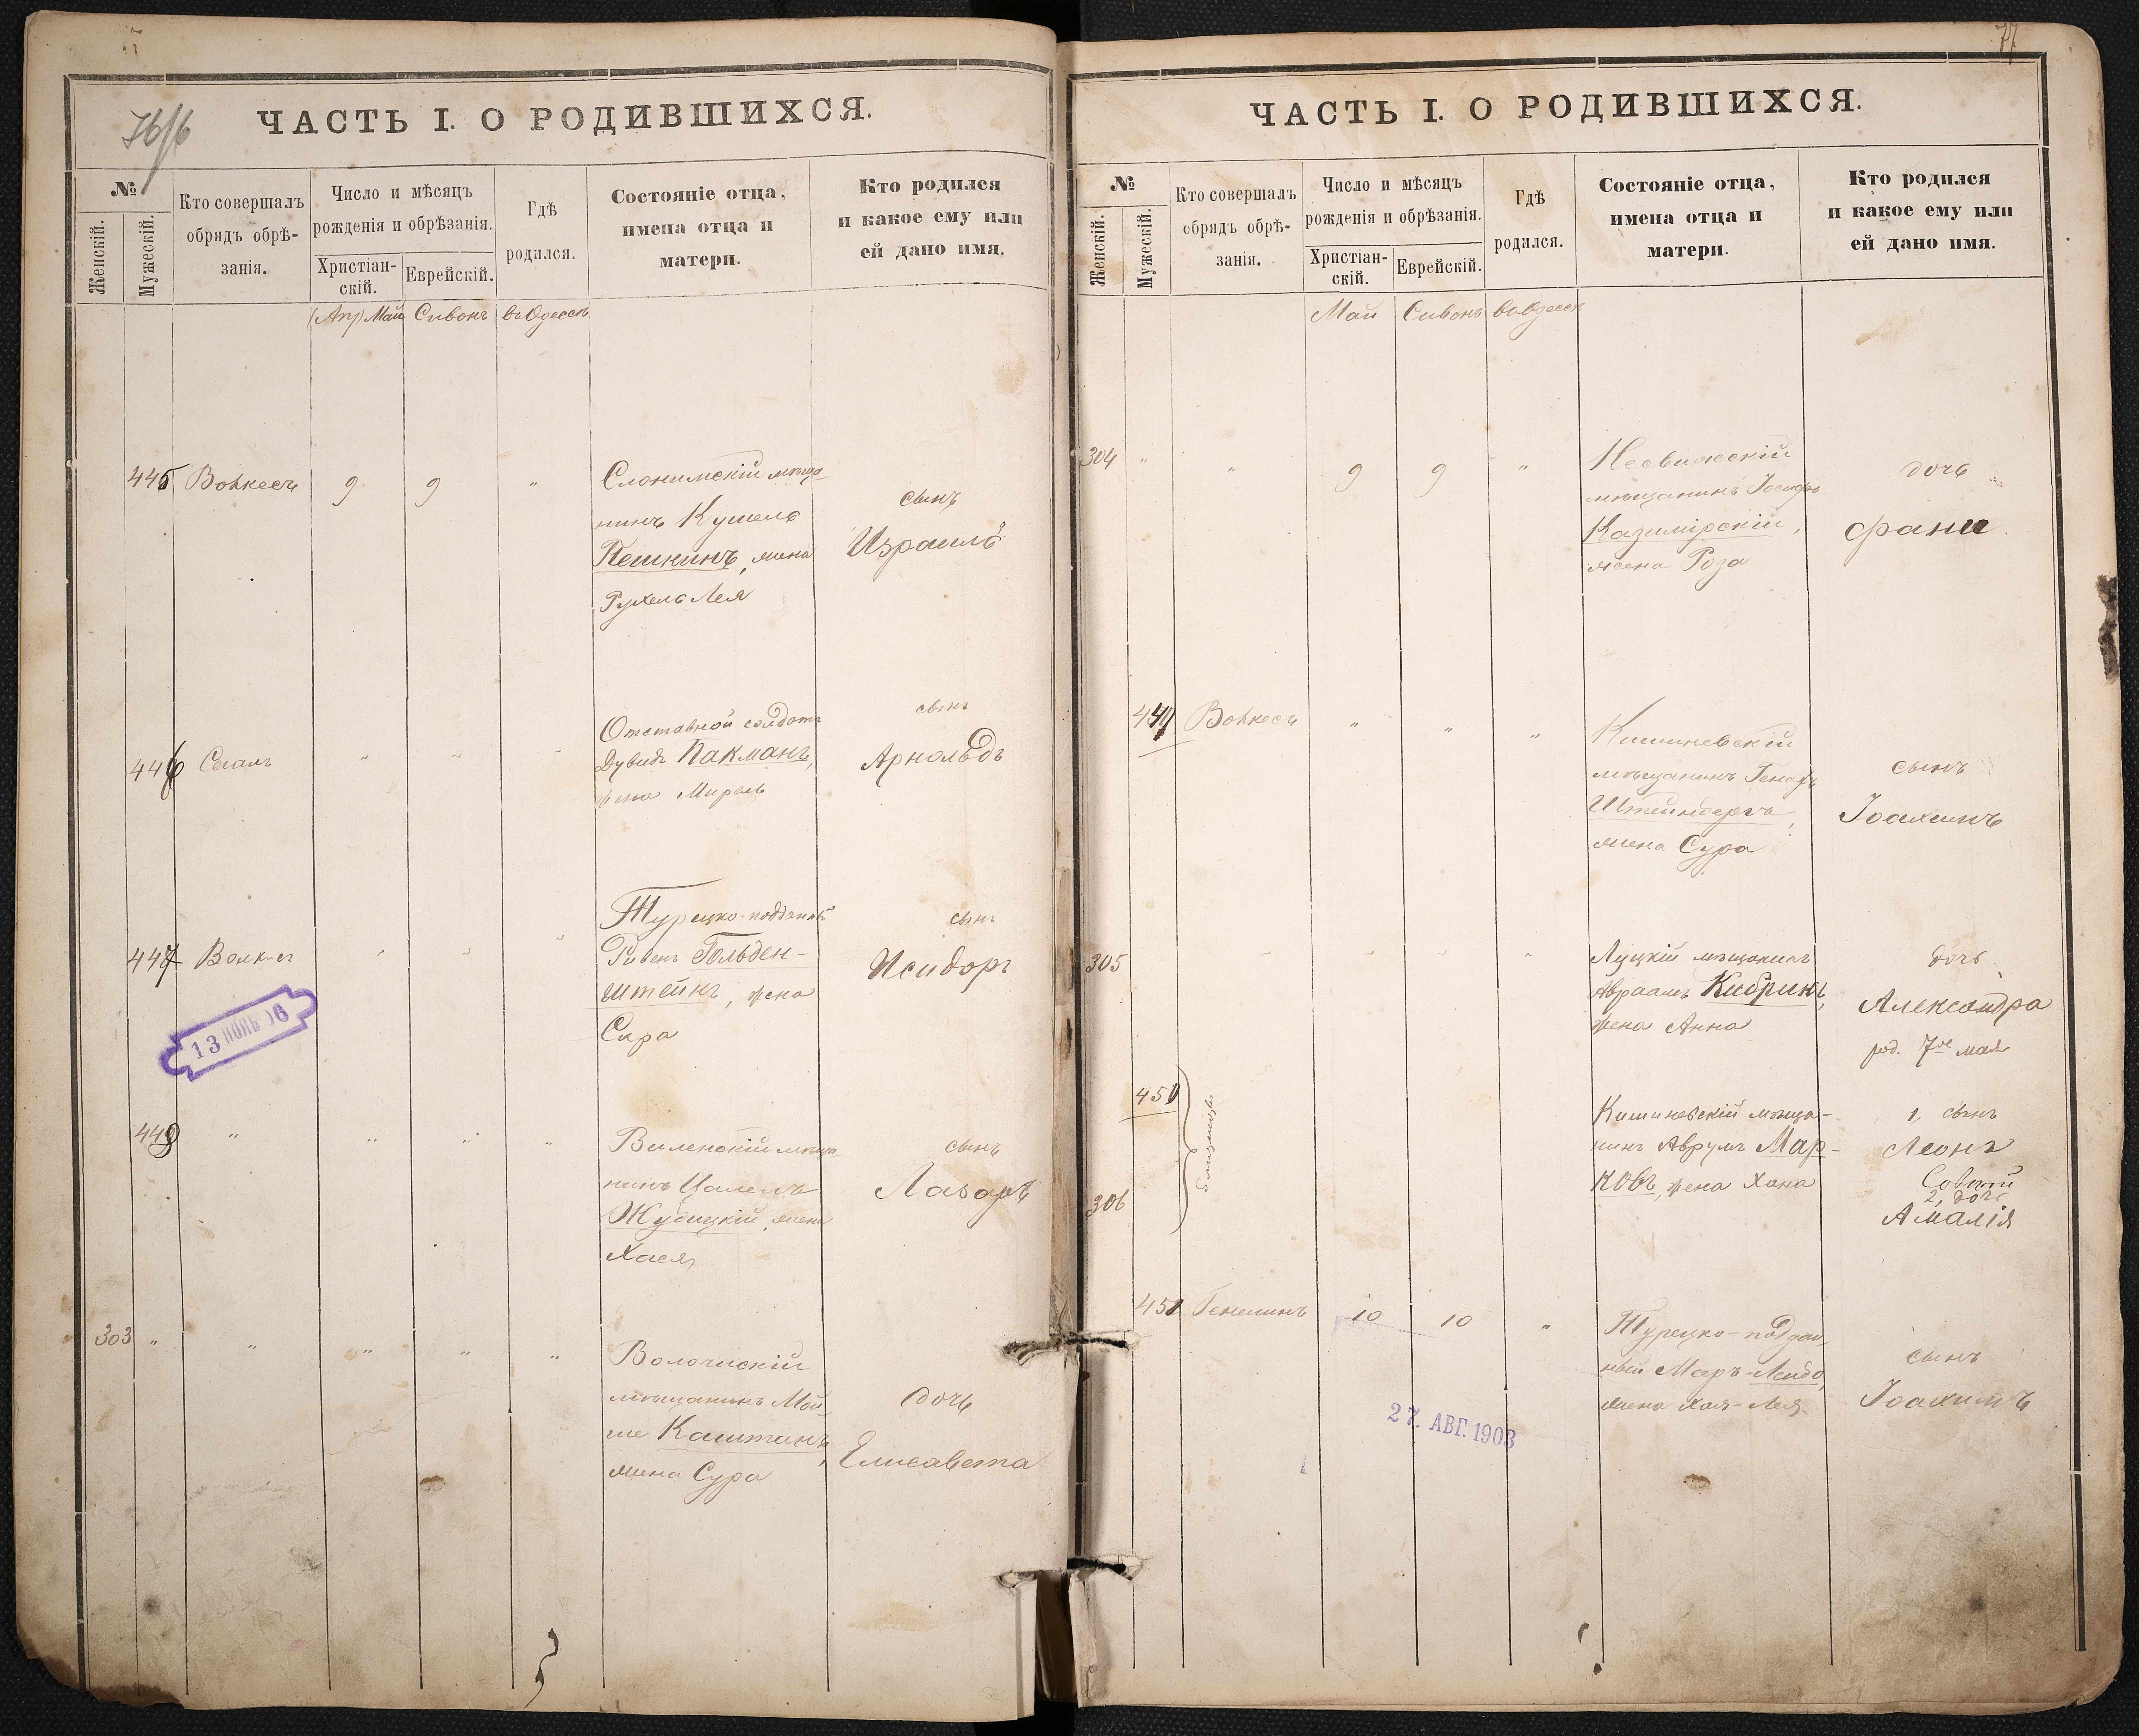 76/6
ЧАСТЬ I. О РОДИВШИХСЯ.
№
Женскій.
Мужескій.
Кто совершалъ
обрядъ обрѣ-
занія.
Число и мѣсяцъ
рожденія и обрѣзанія.
Христіан-
скій.
Еврейскій.
Гдѣ
родился.
Состояніе отца,
имена отца и
матери.
Кто родился
и какое ему или
ей дано имя.
(Апр) Май Сивонъ въ Одессѣ
445 9 9 "
Слонимскій мѣща
нинъ Кушель
Пешкинъ, жена
Рухель Лея
сынъ
Израиль
446 Сегалъ " " "
Отставной солдатъ
Дувидъ Пакманъ,
жена Мирель
сынъ
Арнольдъ
447 " " "
Турецко-подданый
Рувенъ Гольден-
штейнъ, жена
Сура
сынъ
Исидоръ
13 ИЮНЬ 06
448 " " " "
Виленскій мѣща
нинъ
жена
Хася
сынъ
Лазарь
303 " " " " "
Волочискій
мѣщанинъ Мой
ше Каштанъ,
жена Сура
дочь
Елисавета
77
ЧАСТЬ I. О РОДИВШИХСЯ.
№
Женскій.
Мужескій.
Кто совершалъ
обрядъ обрѣ-
занія.
Число и мѣсяцъ
рожденія и обрѣзанія.
Христіан-
скій.
Еврейскій.
Гдѣ
родился.
Состояніе отца,
имена отца и
матери.
Кто родился
и какое ему или
ей дано имя.
Май Сивонъ въ Одессѣ
304 " " 9 9 "
Несвижскій
мѣщанинъ Іосифъ
Казимірскій,
жена Роза
дочь
Фани
449 " " "
Кишиневскій
мѣщанинъ
Штейнбергъ,
жена Сура
сынъ
Іоахимъ
305 " " " "
Луцкій мѣщанинъ
Авраамъ Кибрикъ,
жена Анна
дочь
Александра
род. 7го мая
450
306
близнецы
Кишиневскій мѣща-
нинъ Аврумъ Мар-
ковъ, жена Хана
1, сынъ
Леонъ
2, дочь
Амалія
451 10 10 "
Турецко-поддан
ный Меръ-Лейбо,
жена Хая-Лея
сынъ
Іоахимъ
27. АВГ. 1903